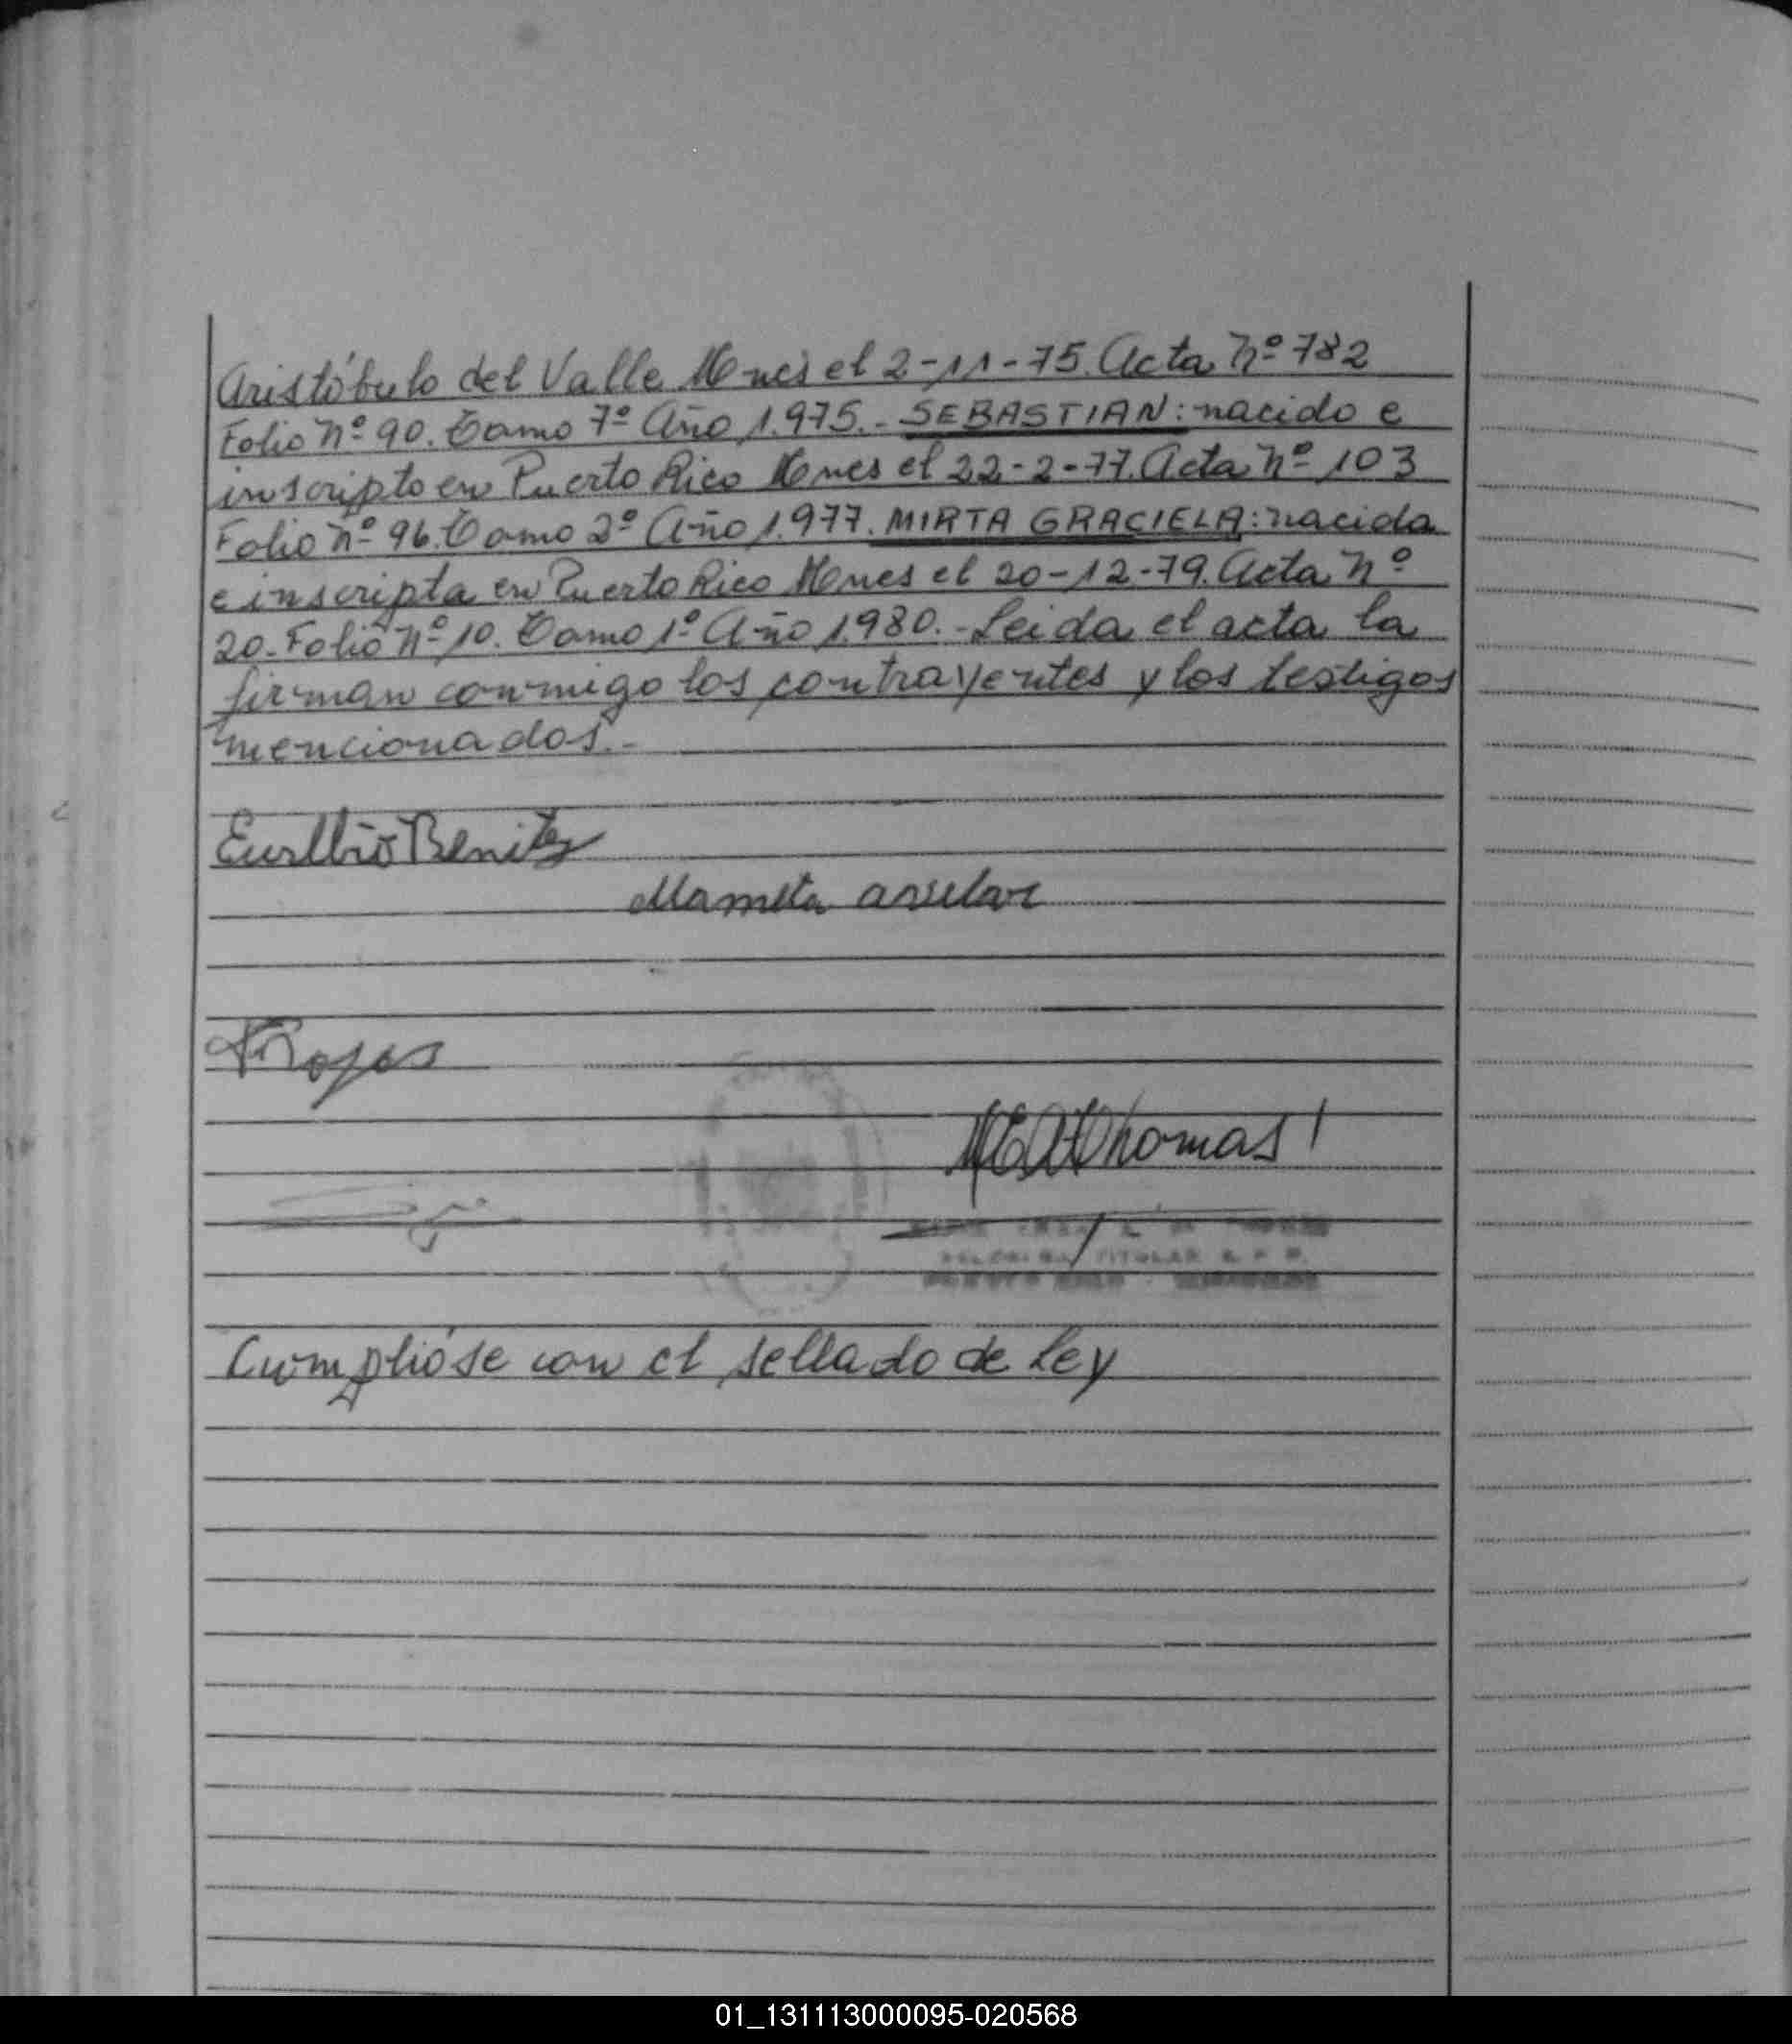 Aristóbulo del Valle Mnes el 2-11-75. Acta Nº 782
Folio Nº 90. Tomo 7º Año 1.975.- SEBASTIAN: nacido e
inscripto en Puerto Rico Mnes el 22-2-77. Acta Nº 103
Folio Nº 96. Tomo 2º Año 1.977. MIRTA GRACIELA: nacida
e inscripta en Puerto Rico Mnes el 20-12-79. Acta Nº
20. Folio Nº 10. Tomo 1º Año 1.980.- Leida el acta la
firman conmigo los contrayentes y los testigos
mencionados.-
Eusebio Benitez
Rojas
Thomas
TITULAR
Cumplióse con el sellado de Ley
01_131113000095-020568